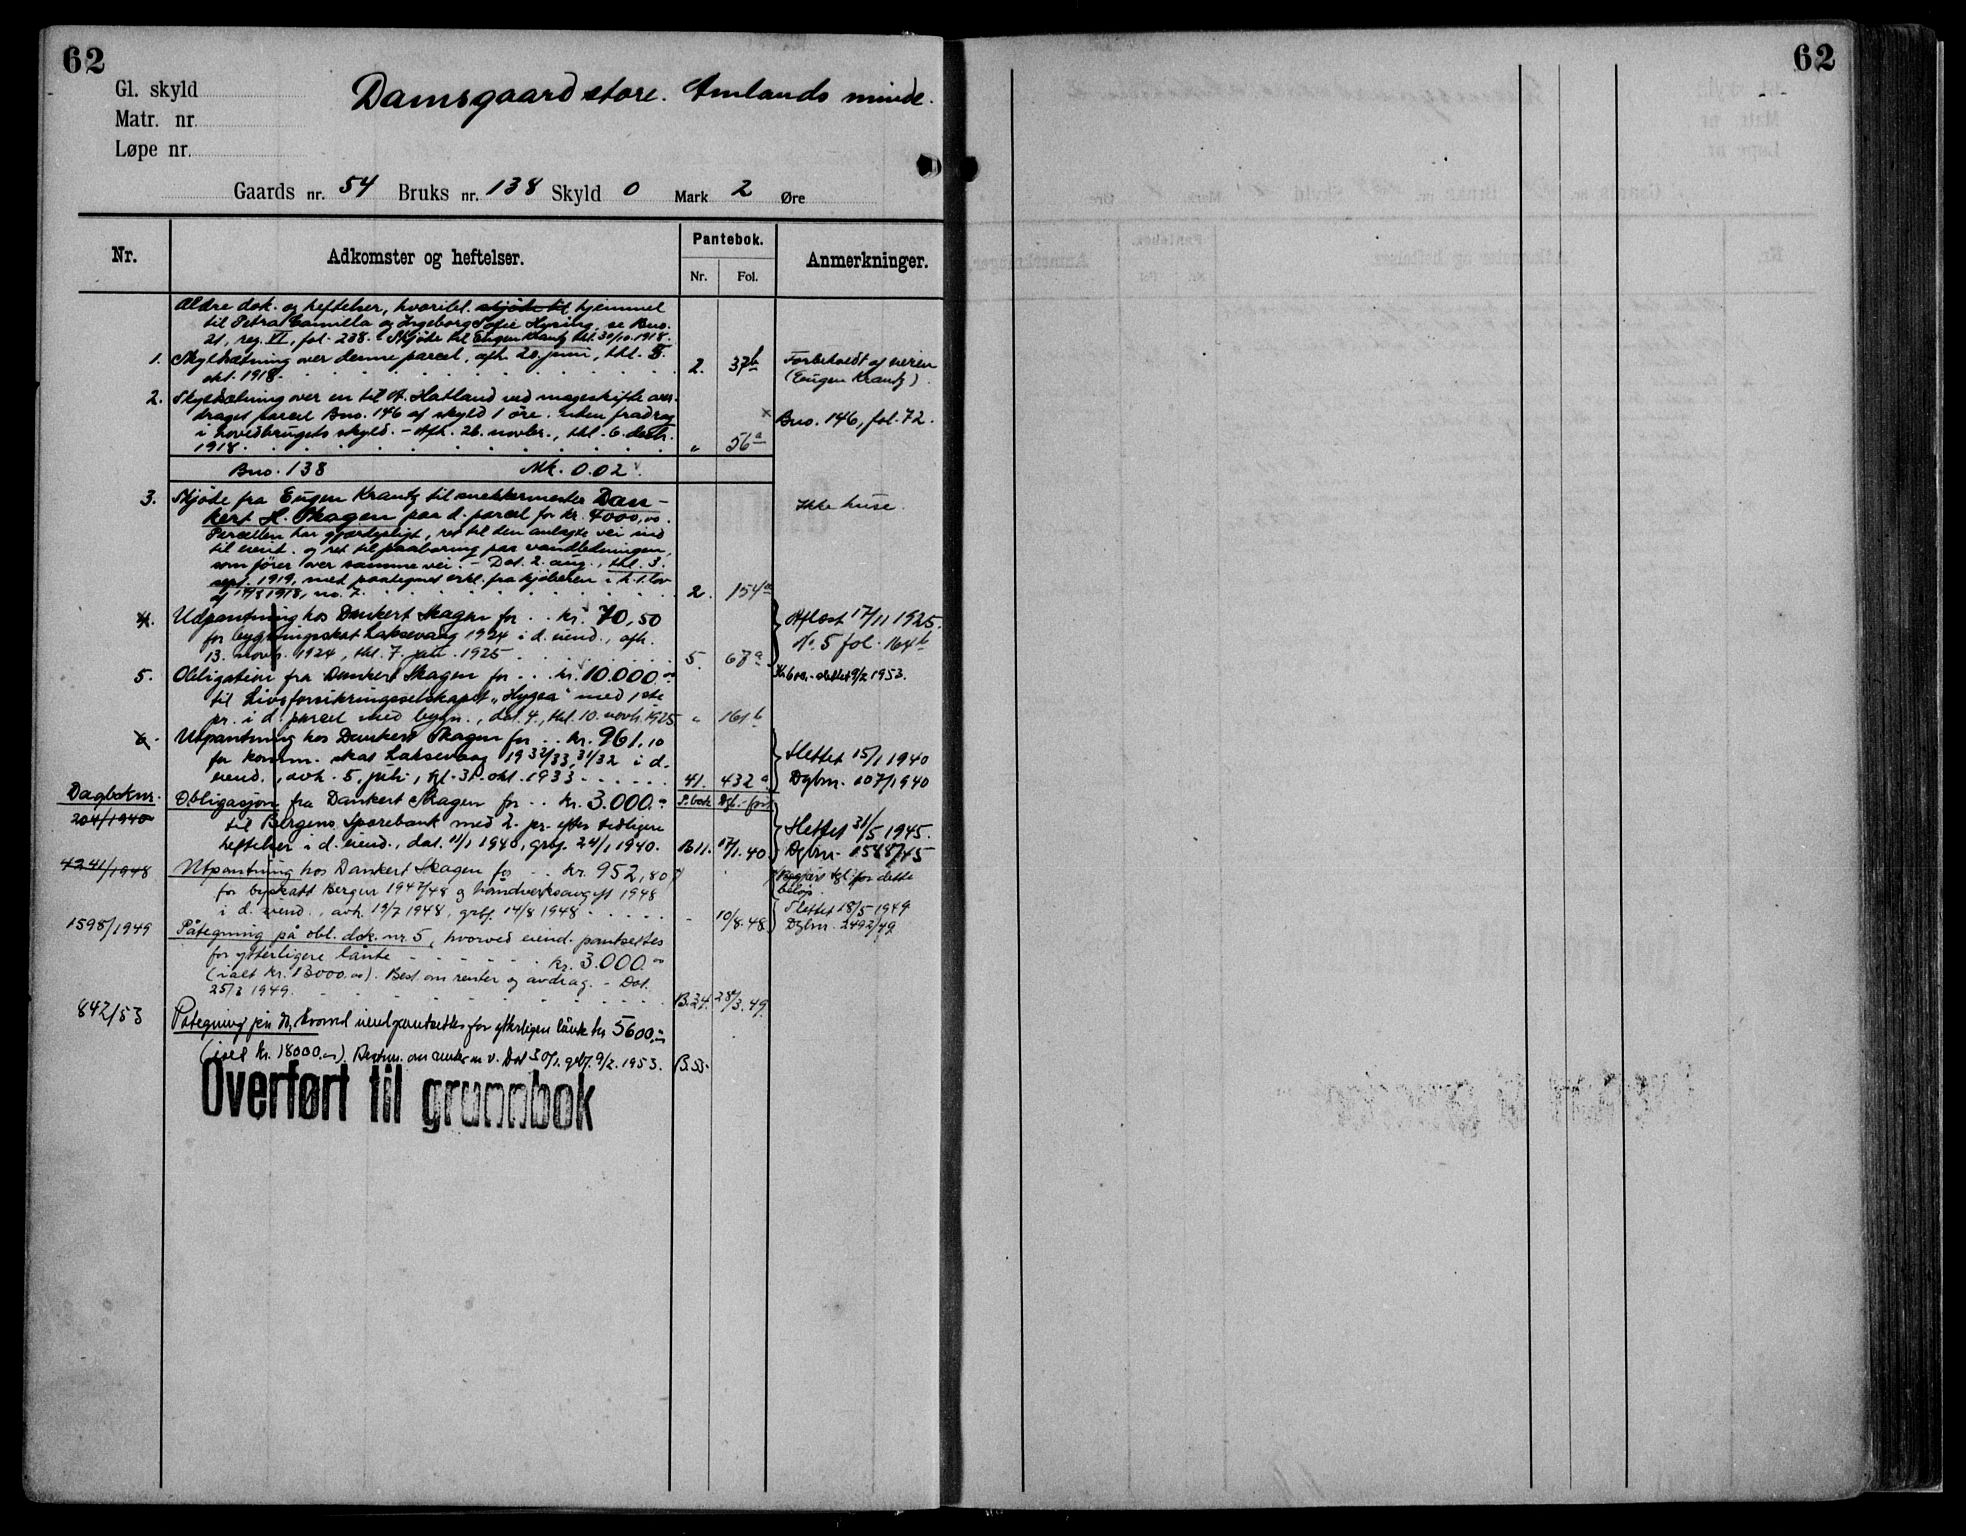 62
62
Gl. skyld
Matr. nr.
Løpe nr.
Damsgaard store. Amlands minde.
Gaards nr. 54 Bruks nr. 138 Skyld 0 Mark 2 Øre
Nr. Adkomster og heftelser. Pantebok. Anmerkninger.
Nr. Fol.
Ældre dok. og heftelser, hvoribl. skjöde til hjemmel
til Petra Camilla og Ingeborg Sofie Hysing, se Bno.
21, reg. VI, fol. 238. Skjöte til Eugen Krantz thl. 30/10. 1918.
1. Skyldsætning over denne parcel, afh. 20. juni, thl. 5. 
okt. 1918. 2. 37b Forbeholdt af eieren
(Eugen Krantz).
2. Skyldsætning over en til A. Hatland ved mageskifte over-
draget parcel Bno. 146 af skyld 1 öre. uden fradrag x Bno. 146, fol. 72.
i hovedbrugets skyld. - Afh. 26. novbr., thl. 6. decbr.
1918. " 56a
Bno. 138 Mk. 0.02
3. Skjöte fra Eugen Krantz til snekkermester Dan-
kert H. Skagen paa d. parcel for kr. 4000,00. Ikke huse.
Parcellen har gjærdepligt, ret til den anlagte vei ind
til eiend. og ret til paaboring paa vandledningen,
som förer over samme vei. - Dat. 2. aug., thl. 3.
sept. 1919, med paategnet erkl. fra kjöberen i h. t. lov
af 14/8 1918, no. 7. 2. 154a
4. Udpantning hos Dankert Skagen for kr. 70,50
for bygningsskat Laksevaag 1924 i d. eiend., afh.
13. novb. 1924, thl. 7. juli 1925 5. 67a
Aflæst 17/11 1925.
No. 5 fol. 164b
5. Obligation fra Dankert Skagen for kr. 10.000.00
til Livsforsikringsselskapet "Hygea" med 1ste
pr. i d. parcel med bygn., dat. 4., thl. 10. novb. 1925 " 161b
Kr. 600,- slettet 9/2 1953.
6. Utpantning hos Dankert Skagen for kr. 961,10
for komm. skat Laksevaag 1932/33, 31/32 i d.
eiend., avh. 5. juli, tgl. 31. okt. 1933 41. 432a
Slettet 15/1 1940
Dgbnr. 107/1940
Dagboknr. P. bok
204/1940 Obligasjon fra Dankert Skagen for kr. 3.000.-
til Bergens Sparebank med 2. pr. efter tidligere
heftelser i d. eiend., dat. 11/1 1940, grbf. 24/1 1940. B 11. 17/1.40
Slettet 31/5 1945.
Dgbnr. 1588/45
4241/1948 Utpantning hos Dankert Skagen for kr. 952,80
for byskatt Bergen 1947/48 og håndverksavgift 1948
i d. eiend., avh. 19/7 1948, grbf. 14/8 1948 - 10/8.48
for dette
beløp.
Slettet 18/5 1949
Dgbnr. 2492/49
1598/1949 Påtegning på obl. dok. nr. 5, hvorved eiend. pantsettes
for ytterligere lånte kr. 3.000.00
(ialt kr. 13000.00). Best. om renter og avdrag. - Dat.
25/3 1949. B.24. 28/3.49
842/53 Påtegning hvorved eiend. pantsettes for ytterligere lånte kr 5600,-
(ialt kr. 18000,-). Bestem. om renter m.v. Dat 30/1. grbf. 9/2. 1953. B.33.
Overført til grunnbok